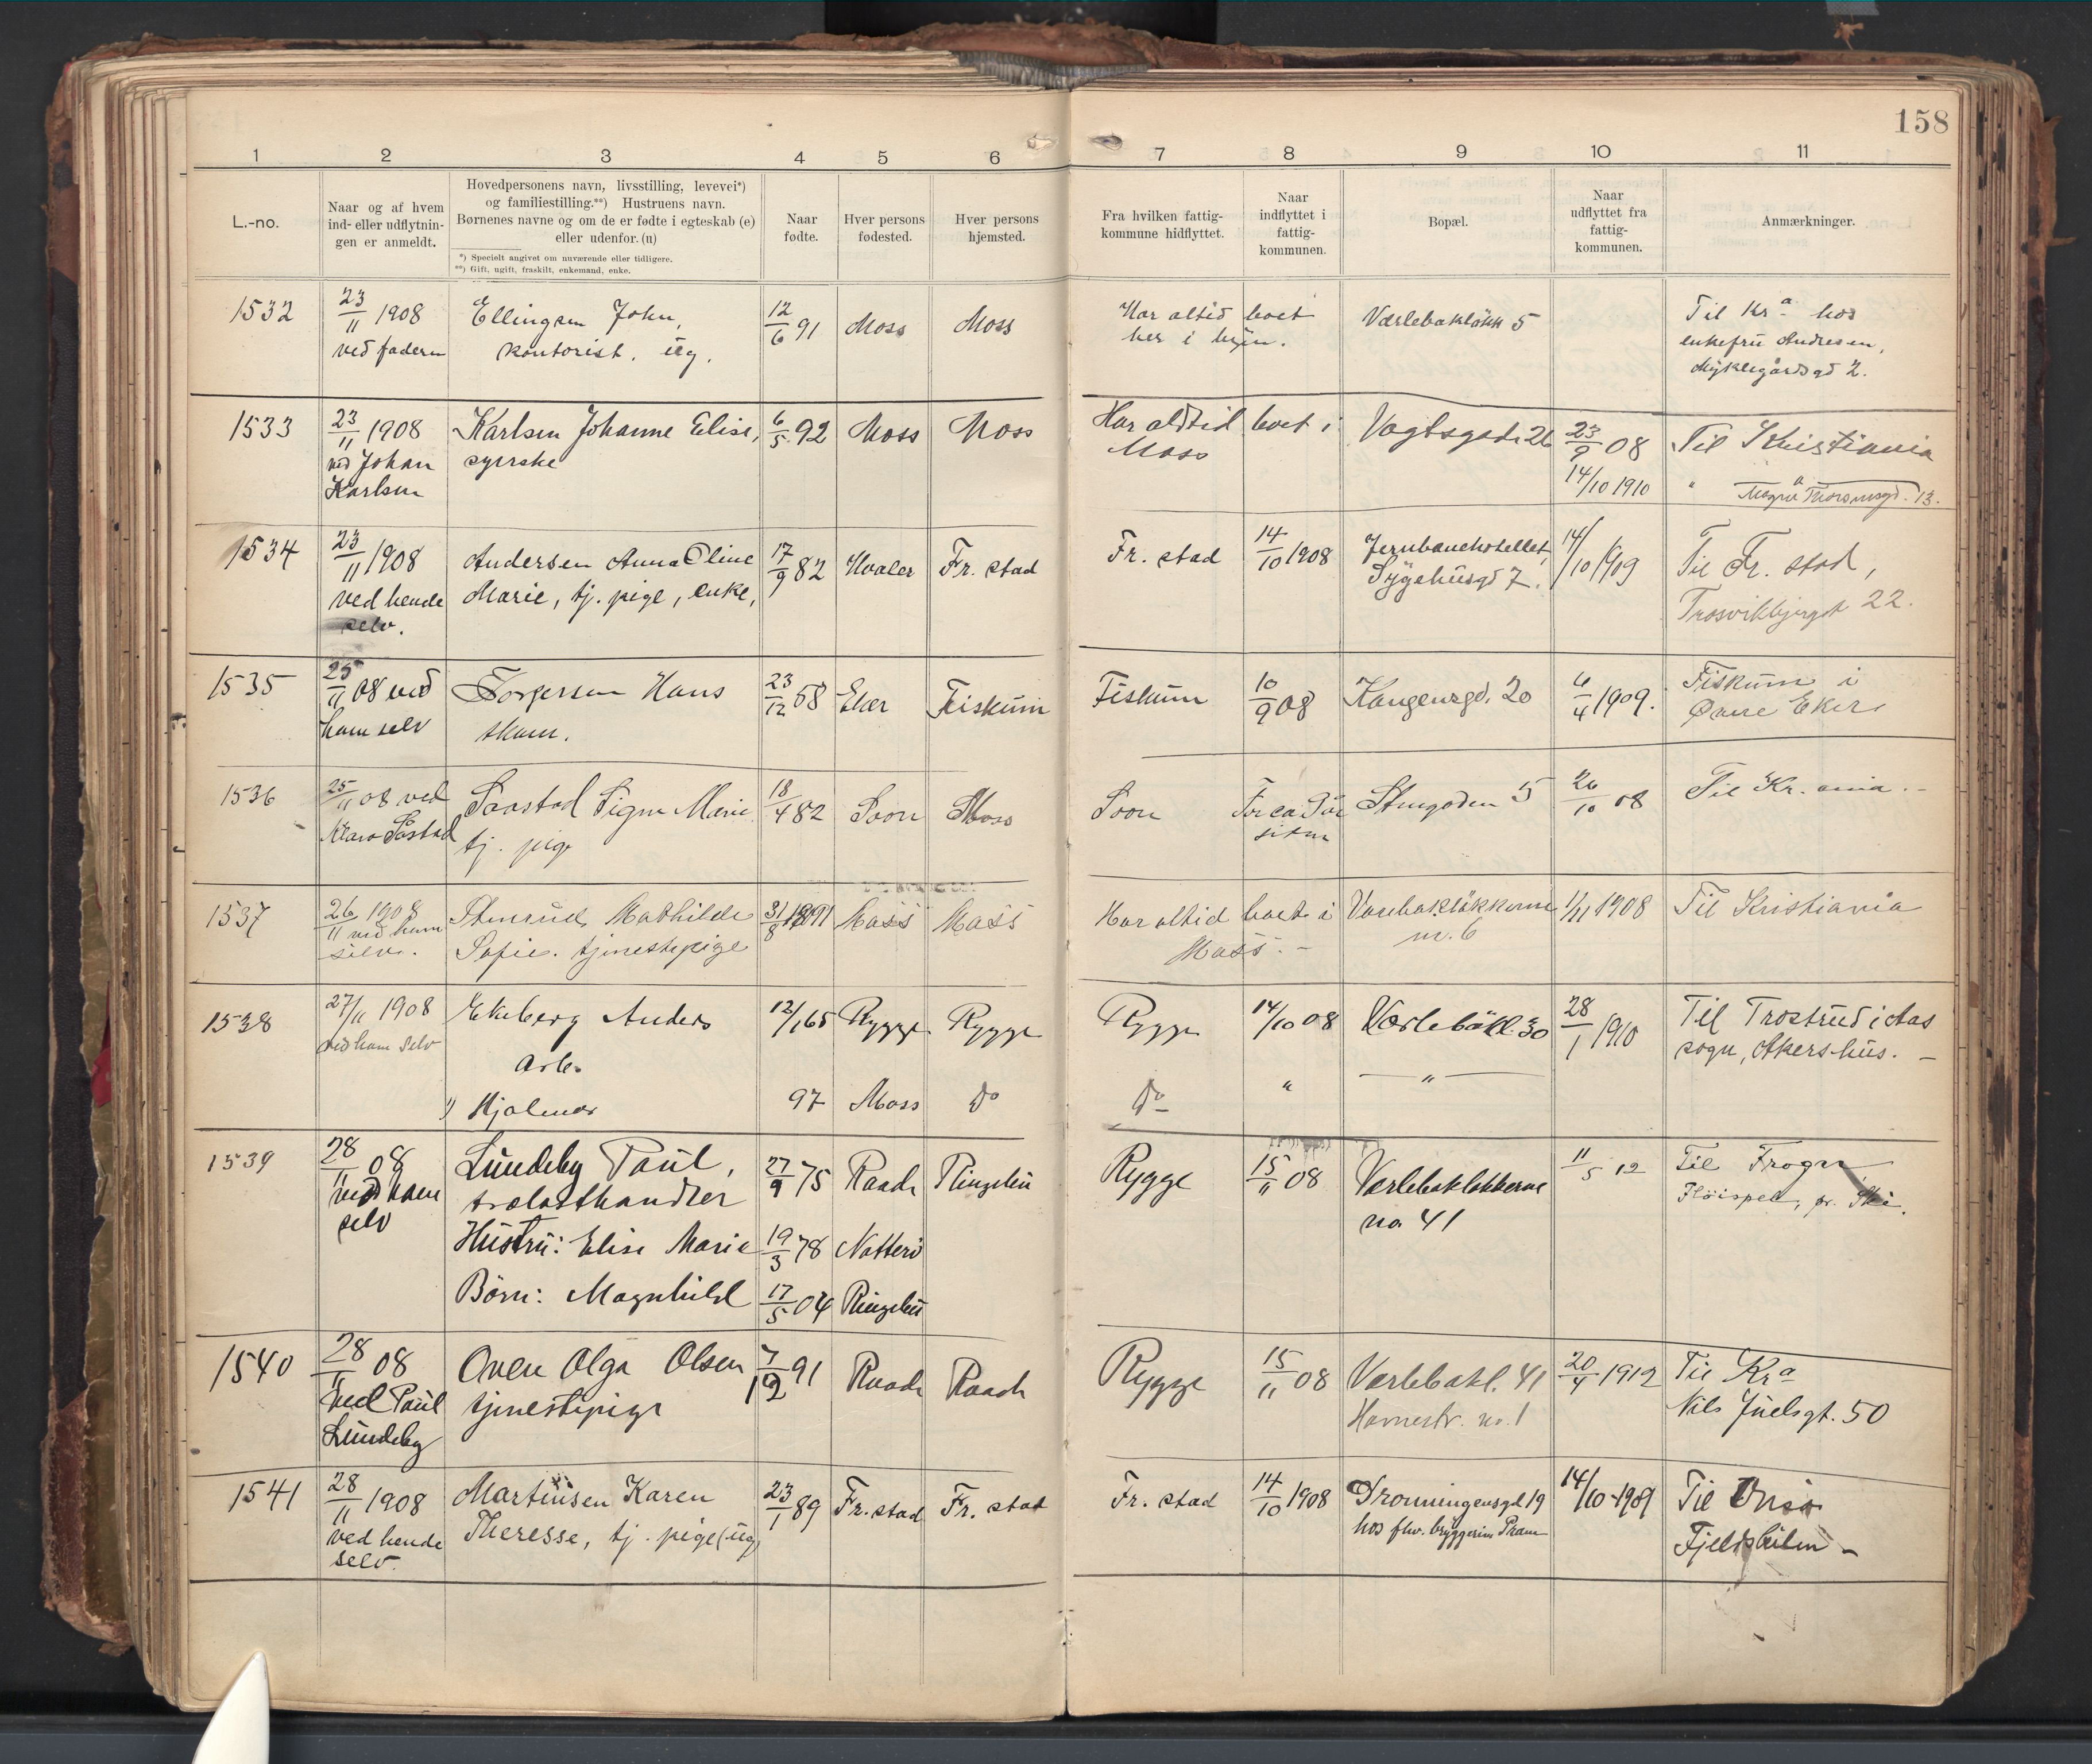 158
1 2 3 4 5 6 7 8 9 10 11
L.-no.
Naar og af hvem
ind- eller udflytnin-
gen er anmeldt.
Hovedpersonens navn, livsstilling, levevei*)
og familiestilling.**) Hustruens navn.
Børnenes navne og om de er fødte i egteskab (e)
eller udenfor. (u)
*) Specielt angivet om nuværende eller tidligere.
**) Gift, ugift, fraskilt, enkemand, enke.
Naar
fødte.
Hver persons
fødested.
Hver persons
hjemsted.
Fra hvilken fattig-
kommune hidflyttet.
Naar
indflyttet i
fattig-
kommunen.
Bopæl.
Naar
udflyttet fra
fattig-
kommunen.
Anmærkninger.
1532 23/11 1908 Ellingsen John, 12/6 91 Moss Moss Har altid boet Værlebakløkk 5 Til Kr.a hos
ved faderen kontorist. ug. her i byen. enkefru Andresen,
Myklegårdsgd 2.
1533 23/11 1908 Karlsen Johanne Elise, 6/5 92 Moss Moss Har altid boet i Vogtsgade 26 23/9 08 Til Kristiania
ved Johan syerske Moss
Karlsen 14/10 1910 " Magnus Thorsensgd. 13.
1534 23/11 1908 Andersen Anna Oline 17/9 82 Hvaler Fr. stad Fr. stad 14/10 1908 Jernbanehotellet, 14/10 1909 Til Fr. stad,
ved hende Marie, tj. pige, enke, Sygehusgd 7. Trosvikbjerget 22.
selv.
1535 25/11 08 ved Torgersen Hans 23/12 58 Eker Fiskum Fiskum 10/9 08 Kongensgd. 20 6/4 1909. Fiskum i
ham selv skom. Øvre Eker
1536 25/11 08 ved Saastad Signe Marie 18/4 82 Soon Moss Soon For ca 3 år Stengaden 5 26/10 08 Til Kr.ania. -
Klara Såstad tj. pige siden
1537 26/11 1908 Stensrud Mathilde 31/8 1891 Moss Moss Har altid boet i Værlebakløkkerne 1/11 1908 Til Kristiania
ved ham Sofie. tjenestepige Moss. - nr. 6
selv.
1538 27/11 1908 Ekeberg Anders 12/1 65 Rygge Rygge Rygge 14/10 08 Værlebakl. 30 28/1 1910 Til Trostrud i Aas
ved ham selv Arb. sogn, Akershus. -
1) Hjalmar 97 Moss Do Do " - " -
1539 28/11 08 Lundeby Paul, 27/9 75 Raade Ringebu Rygge 15/11 08 Værlebakløkkerne 11/5 12 Til Frogn
ved ham trælasthandler no 41 Fløispel, pr. Ski.
selv
Hustru: Elise Marie 19/3 78 Nøtterø
Børn: Magnhild 17/5 04 Ringebu
1540 28/11 08 Oven Olga Olsen 7/12 91 Raade Raade Rygge 15/11 08 Værlebakl. 41 20/4 1912 Til Kra
ved Paul tjenestepige Havnestr. no. 1 Nils Juelsgt. 50
Lundeby
1541 28/11 1908 Martinsen Karen 23/1 89 Fr. stad Fr. stad Fr. stad 14/10 1908 Dronningensgd 19 14/10-1909 Til Onsø
ved hende Theresse, tj. pige (ug) hos fhv. bryggerieier Pram
selv.